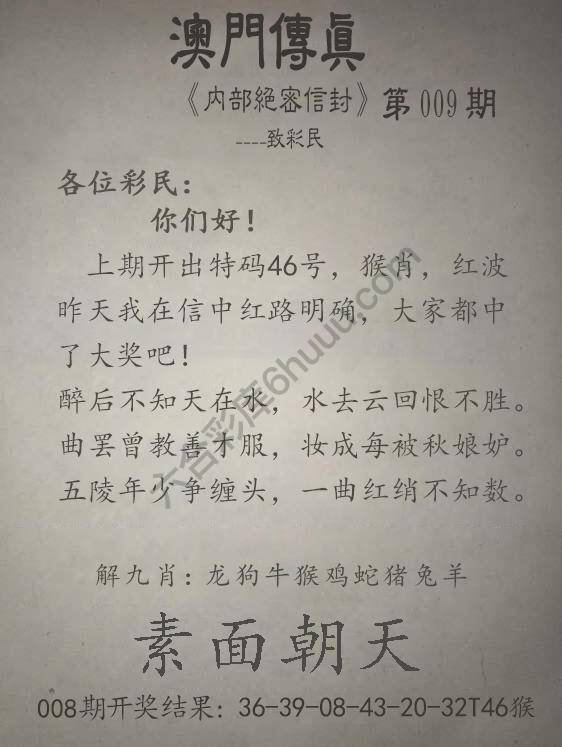 澳門傳眞
《内部絕密信封》第009期
----致彩民
各位彩民：
你们好！
上期开出特码46号，猴肖，红波
昨天我在信中红路明确，大家都中
了大奖吧！
醉后不知天在水，水去云回恨不胜。
曲罢曾教善才服，妆成每被秋娘妒。
五陵年少争缠头，一曲红绡不知数。
六合彩库6huuu.com
解九肖：龙狗牛猴鸡蛇猪兔羊
素面朝天
008期开奖结果：36-39-08-43-20-32T46猴